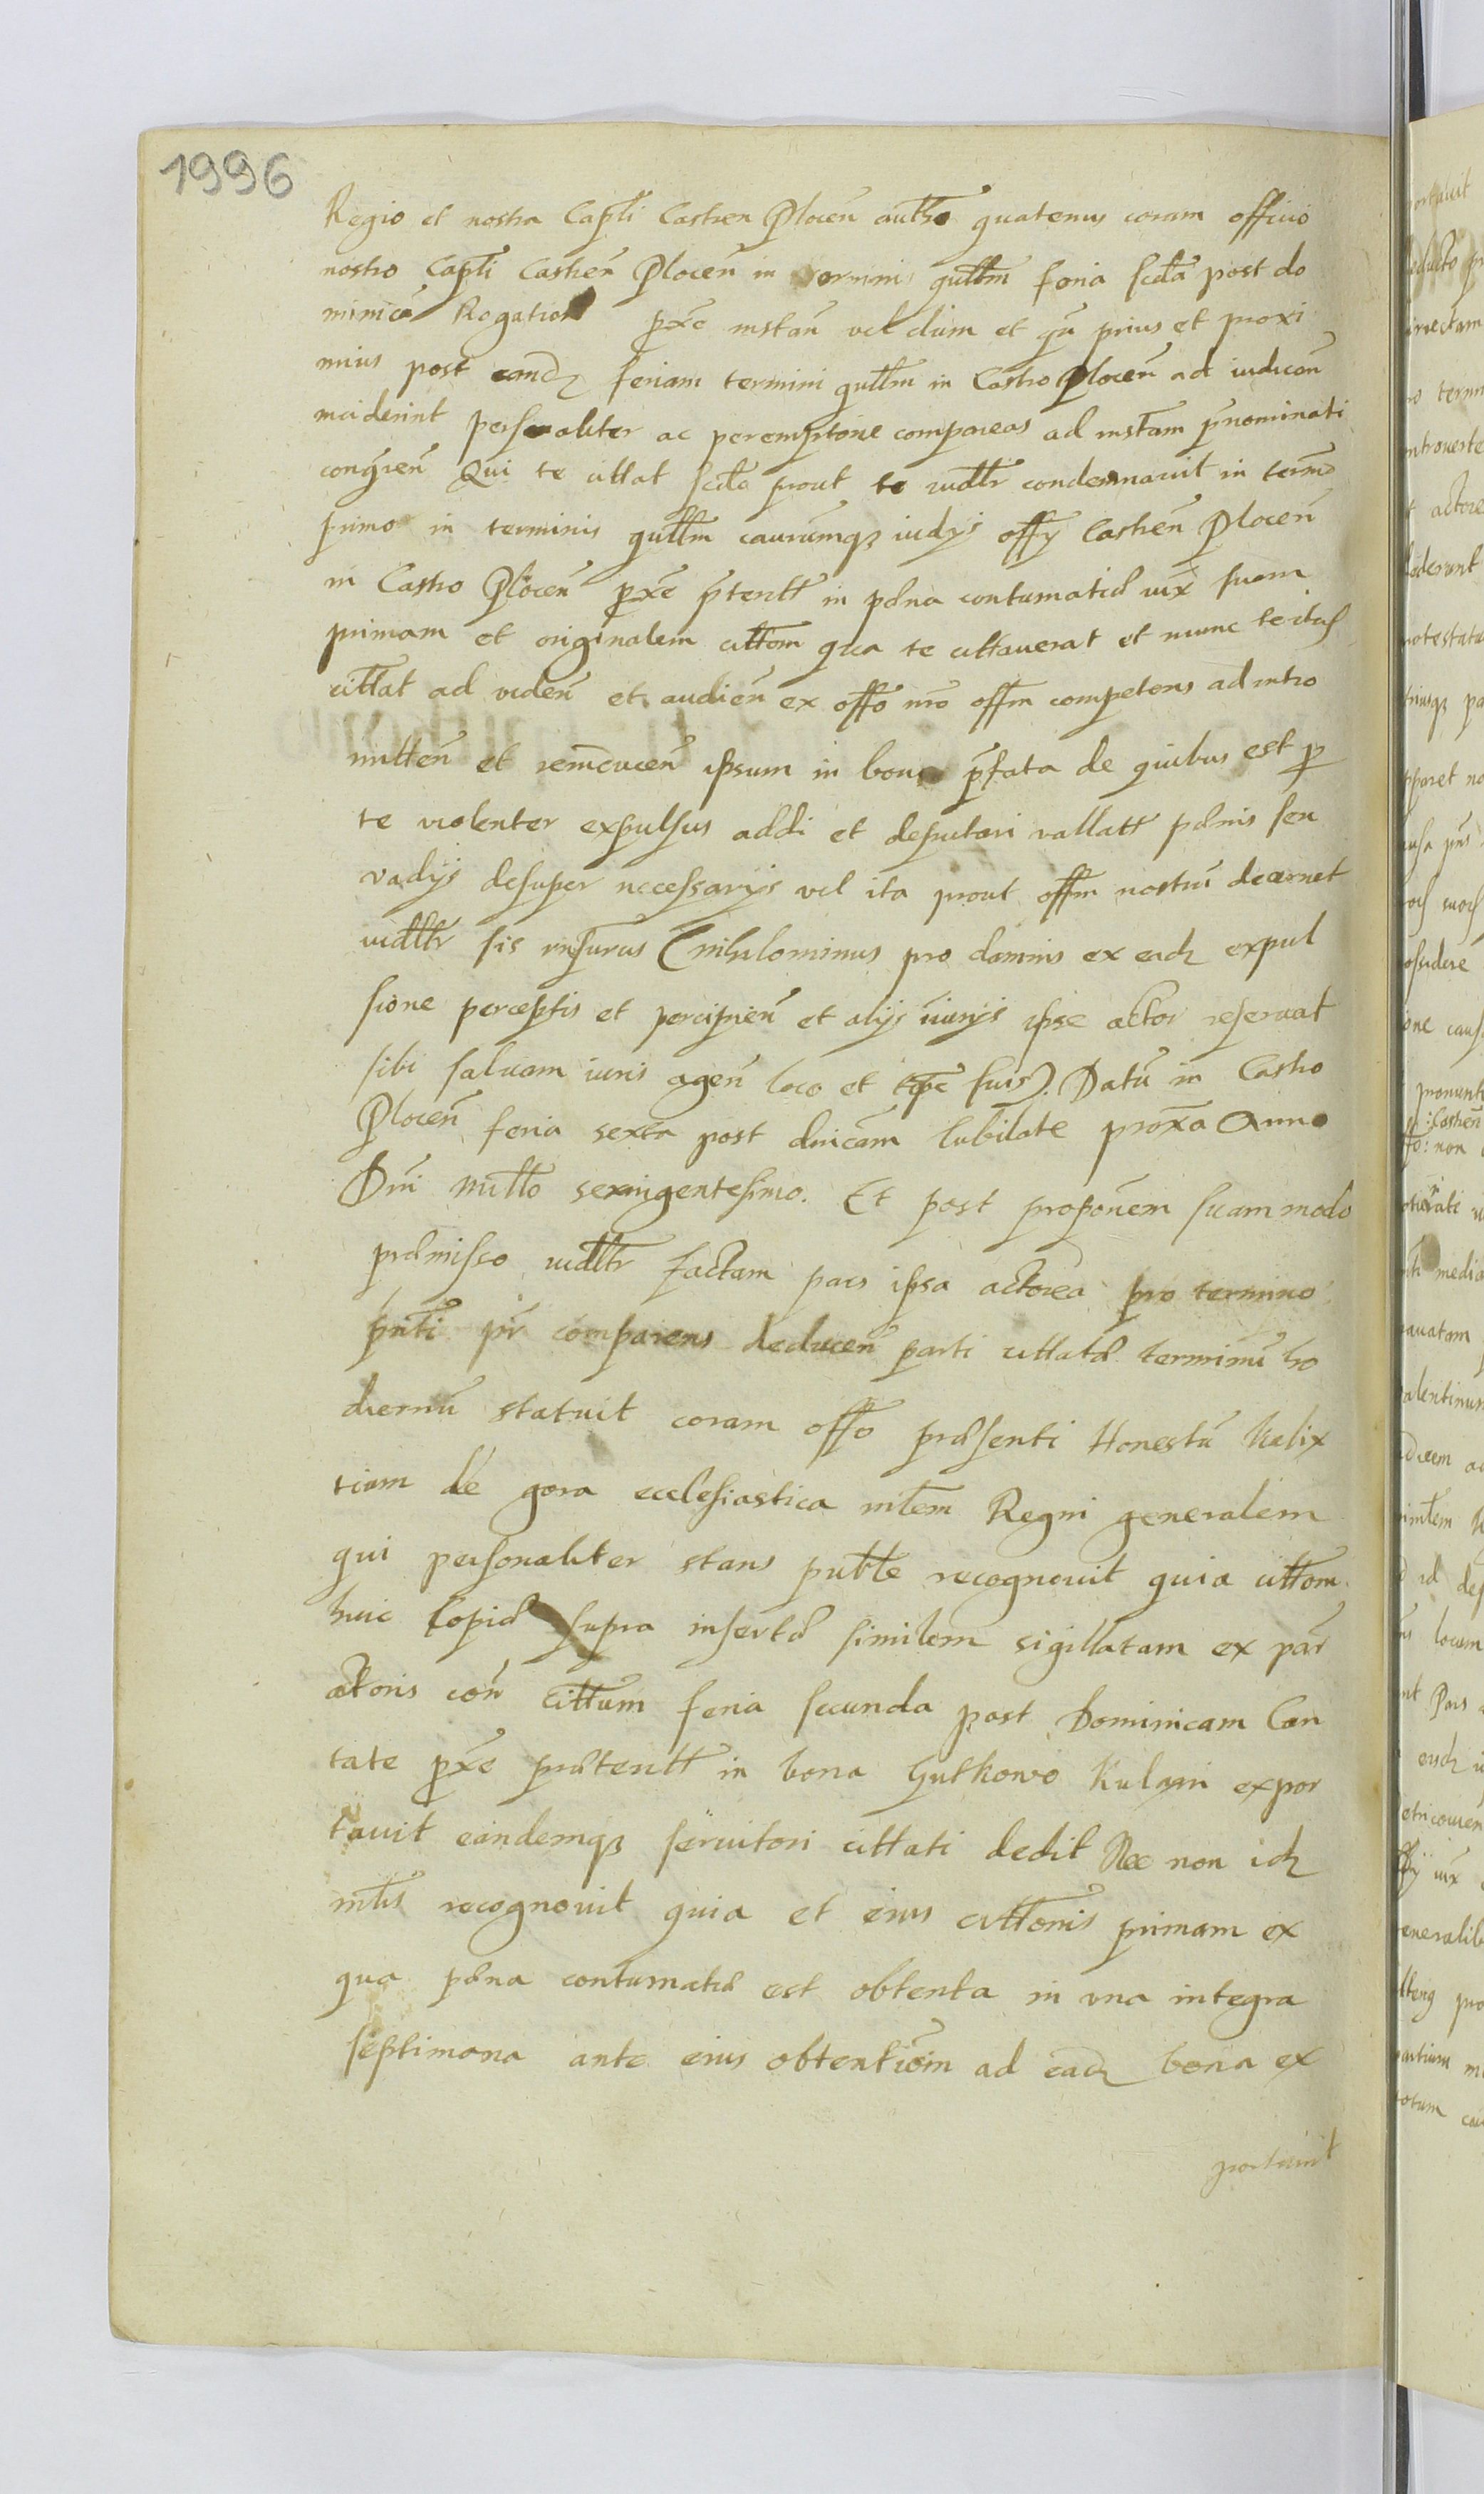 1996
Regio et nostra Capti Castren Plocen autho quatenus coram officio
nostro Capti Castren Plocen in termini quttm feria scda post do
minica Rogation pxe instan vel dum et qn prius et proxi
mius post eandz feriam termini quttm in Castro Plocen ad iudican
inciderint personaliter ac peremptorie compareas ad instam pnominati
conqren Qui te cittat scdo prout te iudltr condemnavit in termo
primo in terminis quttm caurumqz iudijs offy Castren Plocen
in Castro Plocen pxe ptentt in pæna contumatiæ iux suam
primam et originalem cittom qua te cittauerat et nunc te
cittat ad viden et audien ex offo nro offm competens ad intro
mitten et reinducen ipsum in bona pfata de quibus est p
te violenter expulsus addi et deputari vallatt pænis seu
vadijs desuper necessarijs vel ita prout offm nostru decernet
iudltr sis visurus (nihilominus pro damnis ex eadz expul
sione perceptis et percipien et alijs iniurijs ipse actor reseruat
sibi saluam iuris agen loco et tpe suis). Datu in Castro
Plocen feria sexta post dnicam Iubilate proxa Anno
Dni Millo sexingentesimo. Et post proponem suam modo
præmisso iudltr factam pars ipsa actorea pro termino
pnti pr comparens deducen parti cittatæ terminu ho
diernu statuit coram offo præsenti Honestu Kalix
tium de gora ecclesiastica mtem Regni generalem
qui personaliter stans puble recognouit quia cittom
huic Copiæ supra insertæ similem sigillatam ex par
actoris con Cittum feria secunda post Dominicam Can
tate pxe prætentt in bona Gutkowo Kulwin expor
tauit eandemqz seruitori cittati dedit Nec non idz
mtis recognouit quia et eius cittonis primam ex
qua pæna contumatiæ est obtenta in vna integra
septimana ante eius obtentiom ad eadz bona ex
portauit